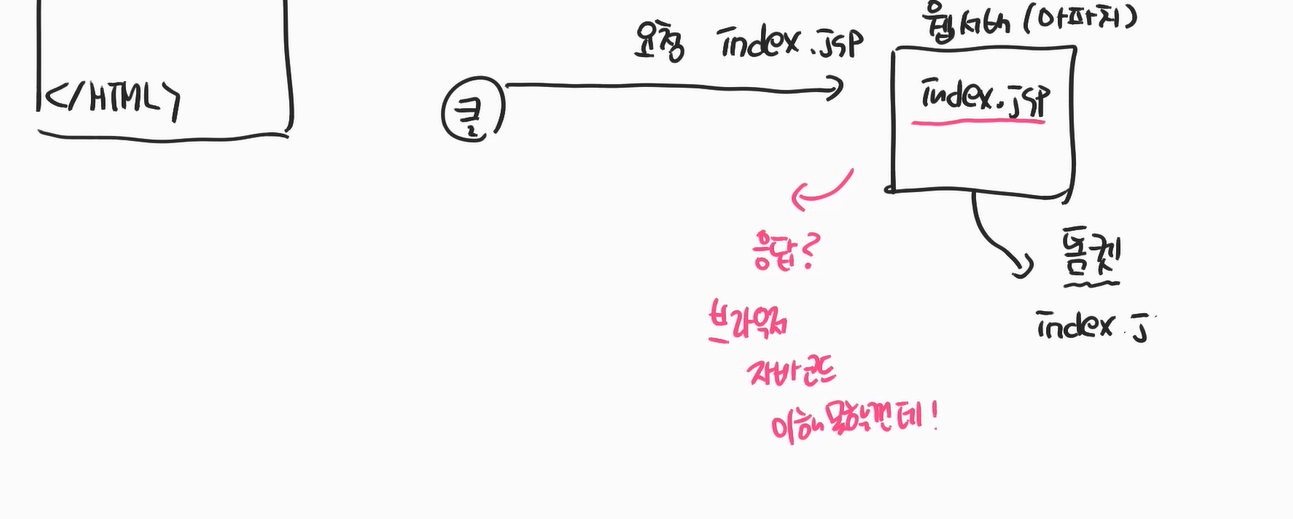 </HTML>
클
요청 index.jsp
웹서버 (아파치)
index.jsp
응답?
브라우저
자바코드
이해 못할건데!
톰켓
index.j